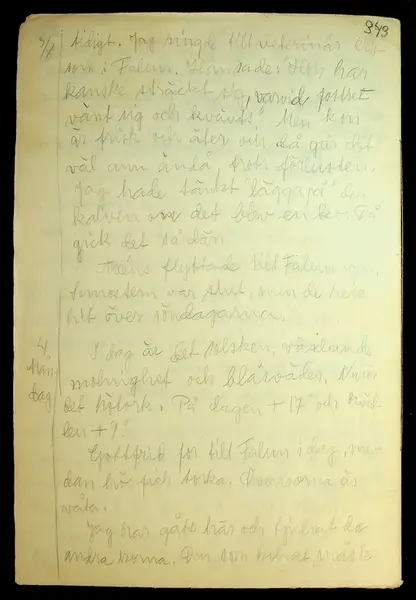 343
3/8 tidigt. Jag ringde till veterinär
son i Falun. Han sade: Hon har
kanske sträckt sig, varvid fostret
vänt sig och kvävts". Men kon
är frisk och äter och då går det
väl ann ändå trots förlusten.
Jag hade tänkt "lägga på" den
kalven om det blev en ko. Då
gick det sådan.
flyttade till Falun
Semestern var slut, men de resa
hit över söndagarna.
4. I dag är det solsken, växlande
Mån molnighet och blåsväder.
dag det hötork. På dagen + 17° och
len + 9°.
Gottfrid for till Falun i dag, me-
dan hö fick torka. är
våta.
Jag har gått här och de
andra korna. Den som kalvat, måste